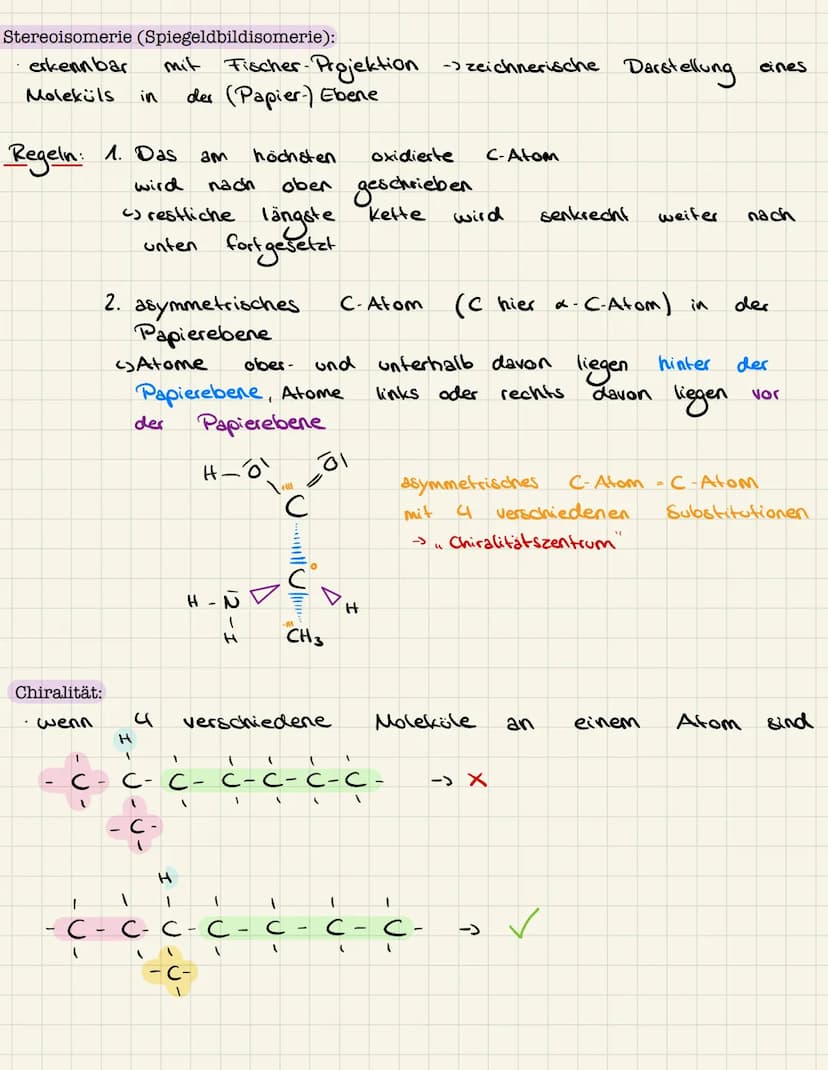 Stereoisomerie (Spiegeldbildisomerie):
· erkennbar mit Fischer-Projektion -> zeichnerische Darstellung eines
Moleküls in der (Papier-) Ebene
Regeln: 1. Das am höchsten oxidierte C-Atom
wird nach oben geschrieben
↳ restliche längste Kette wird senkrecht weiter nach
unten fortgesetzt
2. asymmetrisches C-Atom (C hier α-C-Atom) in der
Papierebene
↳ Atome ober- und unterhalb davon liegen hinter der
Papierebene, Atome links oder rechts davon liegen vor
der Papierebene
H-O O
C
asymmetrisches C-Atom = C-Atom
mit 4 verschiedenen Substitutionen
-> "Chiralitätszentrum"
C
H - N H
H CH3
Chiralität:
· wenn 4 verschiedene Moleküle an einem Atom sind
H
- C - C - C - C - C - C - C - -> X
- C -
H
- C - C - C - C - C - C - C - -> ✓
- C -